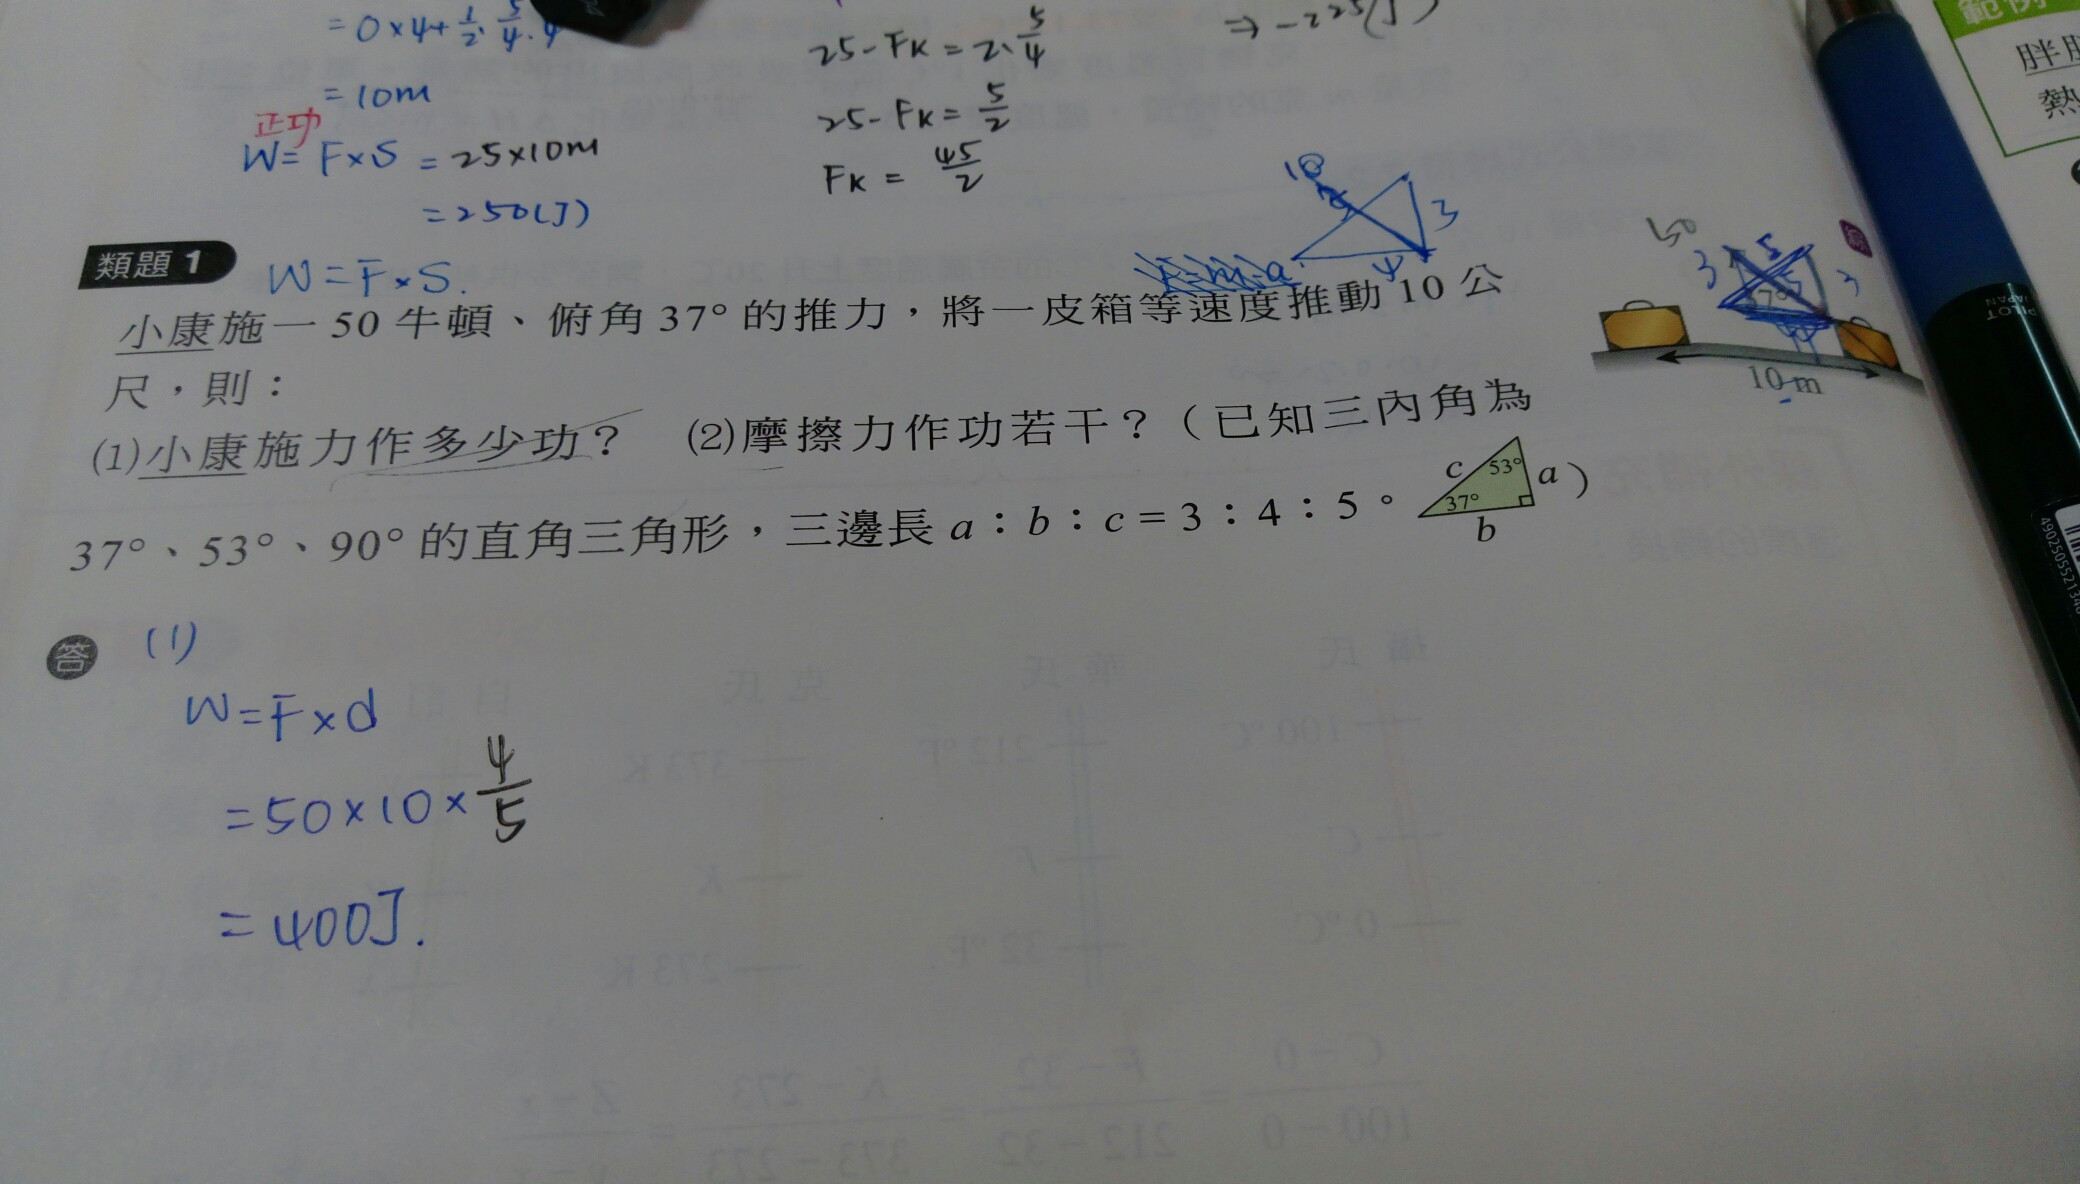 = 0×4+ 1/2 · 5/4 · 4
= 10m
正功
W= F×S = 25×10m
= 250(J)
25-FK = 2· 5/4
25-FK = 5/2
FK = 45/2
⇒ -225(J)
範例
熱
類題 1
W=F×S.
3
4
小康施一 50 牛頓、俯角 37° 的推力，將一皮箱等速度推動 10 公
尺，則：
(1)小康施力作多少功？ (2)摩擦力作功若干？（已知三內角為
37°、53°、90° 的直角三角形，三邊長 a：b：c = 3：4：5。
c 53° a）
37°
b
50
3 5 3
10 m
PILOT
JAPAN
答 (1)
W=F×d
=50×10× 4/5
=400J.